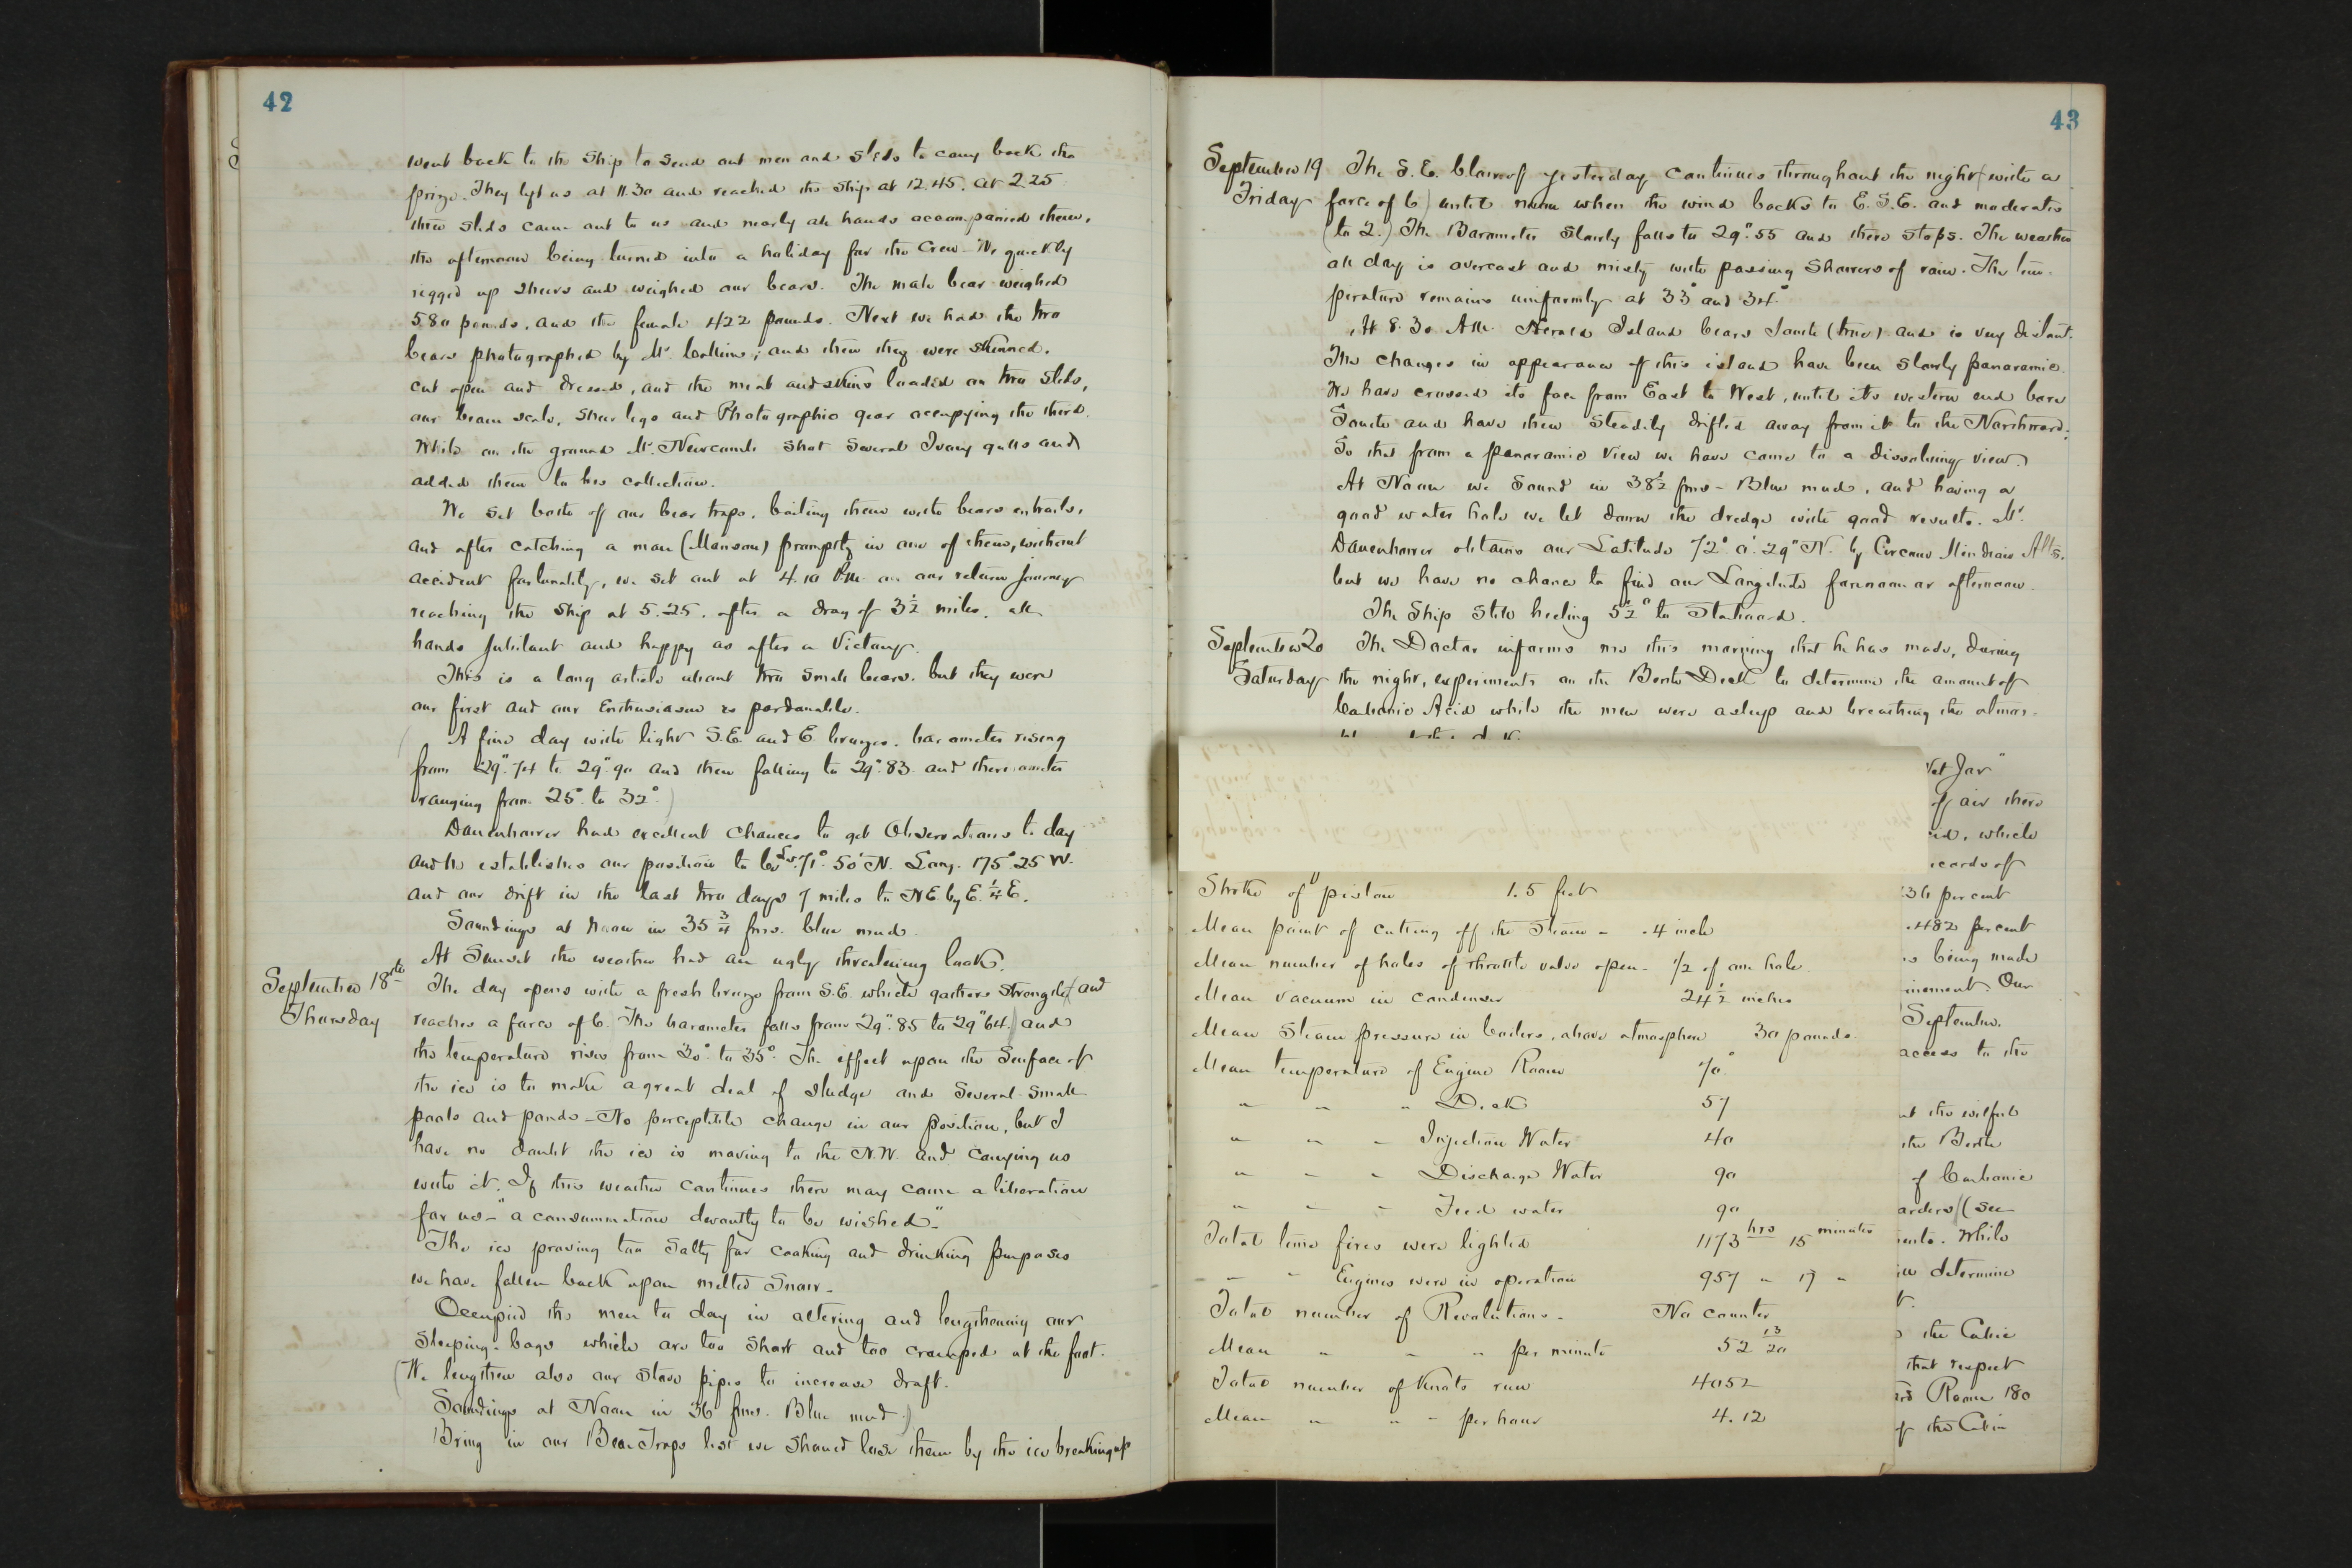 42
went back to the Ship to send out men and sleds to carry back the
prize. They left us at 11.30 and reached the ship at 12.45. At 2.25
three sleds came out to us and nearly all hands accompanied them,
the afternoon being turned into a holiday for the Crew. We quickly
rigged up sheers and weighed our bears. The male bear weighed
580 pounds, and the female 422 pounds. Next we had the two
bears photographed by Mr. Collins; and then they were skinned,
cut open and dressed, and the meat and skins loaded on two sleds,
our beam scale, shear legs and Photographic gear occupying the third.
While on the ground Mr. Newcomb shot several Ivory gulls and
added them to his collection.
We set both of our bear traps, baiting them with bears entrails,
and after catching a man (Manson) promptly in one of them, without
accident fortunately, we set out at 4.10 P.M. on our return journey
reaching the ship at 5.25. after a drag of 3½ miles. all
hands jubilant and happy as after a Victory.
This is a long article about two small bears. but they were
our first and our Enthusiasm is pardonable.
(A fine day with light S.E. and E. breezes. barometer rising
from 29".74 to 29".90 and then falling to 29".83 and thermometer
ranging from 25° to 32°.)
Danenhower had excellent Chances to get Observations to day
and he establishes our position to be Lat. 71° 50' N. Long. 175° 25 W.
and our drift in the last two days 7 miles to NE. by E. ¼ E.
Soundings at Noon in 35 ¾ fms. blue mud.
At Sunset the weather had an ugly threatening look.
September 18th
Thursday
The day opens with a fresh breeze from S.E. which gathers strength (and
reaches a force of 6. The barometer falls from 29".85 to 29"64.) and
the temperature rises from 30° to 35°. The effect upon the Surface of
the ice is to make a great deal of sludge and several small
pools and ponds - No perceptible change in our position, but I
have no doubt the ice is moving to the N.W. and carrying us
with it. If this weather continues there may come a liberation
for us - "a consummation devoutly to be wished".
The ice proving too Salty for cooking and drinking purposes
we have fallen back upon melted Snow -
Occupied the men to day in altering and lengthening our
Sleeping-bags which are too short and too cramped at the foot.
(We lengthen also our stove pipes to increase draft.
Soundings at Noon in 36 fms. Blue mud.)
Bring in our Bear Traps lest we should lose them by the ice breaking up
43
September 19
Friday
The S.E. blow of yesterday continues throughout the night (with a
force of 6) until noon when the wind backs to E.S.E. and moderates
(to 2.) The Barometer slowly falls to 29".55 and there stops. The weather
all day is overcast and misty with passing showers of rain. The tem-
perature remains uniformly at 33° and 34°
At 8.30 A.M. Herald Island bears South (true) and is very distant.
The changes in appearance of this island have been slowly panoramic.
We have crossed its face from East to West, until its western end bore
South and have then steadily drifted away from it to the Northward;
So that from a panoramic view we have come to a dissolving view.
At Noon we Sound in 38½ fms - Blue mud, and having a
good water hole we let down the dredge with good results. Mr.
Danenhower obtains our Latitude 72° 0'. 29" N. by Circum Meridian Alts.
but we have no chance to find our Longitude forenoon or afternoon.
The Ship still heeling 5½° to Starboard.
September 20
Saturday
The Doctor informs me this morning that he has made, during
the night, experiments on the Berth Deck to determine the amount of
Carbonic Acid while the men were asleep and breathing the atmos-
Stroke of piston 1.5 feet
Mean point of cutting off the Steam - .4 inch
Mean number of holes of throttle valve open - 1/2 of one hole
Mean vacuum in Condenser 24½ inches
Mean Steam pressure in boilers, above atmosphere 30 pounds
Mean temperature of Engine Room 70°
" " " Deck 57
" " " Injection Water 40
" " " Discharge Water 90
" " " Feed water 90
Total time fires were lighted 1173 hrs 15 minutes
" " Engines were in operation 957 " 17 "
Total number of Revolutions - No counter
Mean " " " per minute 52 13/20
Total number of Knots run 4052
Mean " " " per hour 4.12
Jar"
of air there
, which
records of
per cent
.482 per cent
is being made
. Our
September.
access to the
the wilful
the Berth
of Carbonic
(see
. While
determine
the Cabin
that respect
Room 180
of the Cabin